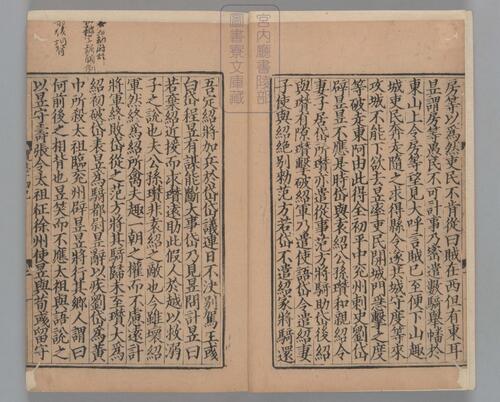 宮内廳書陵部
圖書寮文庫藏
房等以為然吏民不肯從曰賊在西但有東耳
昱謂房等愚民不可計事乃密遣數騎舉幡於
東山上令房等望見大呼言賊已至便下山趣
城吏民奔走隨之求得縣令遂共城守度等來
攻城不能下欲去昱率吏民開城門急擊之度
等破走東阿由此得全初平中兗州刺史劉岱
辟昱昱不應是時岱與袁紹公孫瓚和親紹令
妻子居岱所瓚亦遣從事范方將騎助岱後紹
與瓚有隙瓚擊破紹軍乃遣使語岱令遣紹妻
子使與紹絕別勑范方若岱不遣紹家將騎還
吾定紹將加兵於岱岱議連日不決別駕王彧
白岱程昱有謀能斷大事岱乃召見昱問計昱曰
若棄紹近援而求瓚遠助此假人於越以救溺
子之說也夫公孫瓚非袁紹之敵也今雖壞紹
軍然終為紹所禽夫趣一朝之權而不慮遠計
將軍終敗岱從之范方將其騎歸未至瓚大為
紹所破岱表昱為騎都尉昱辭以疾劉岱為黃
巾所殺太祖臨兗州辟昱昱將行其鄉人謂曰
何前後之相背也昱笑而不應太祖與語說之
以昱守壽張令太祖征徐州使昱與荀彧留守